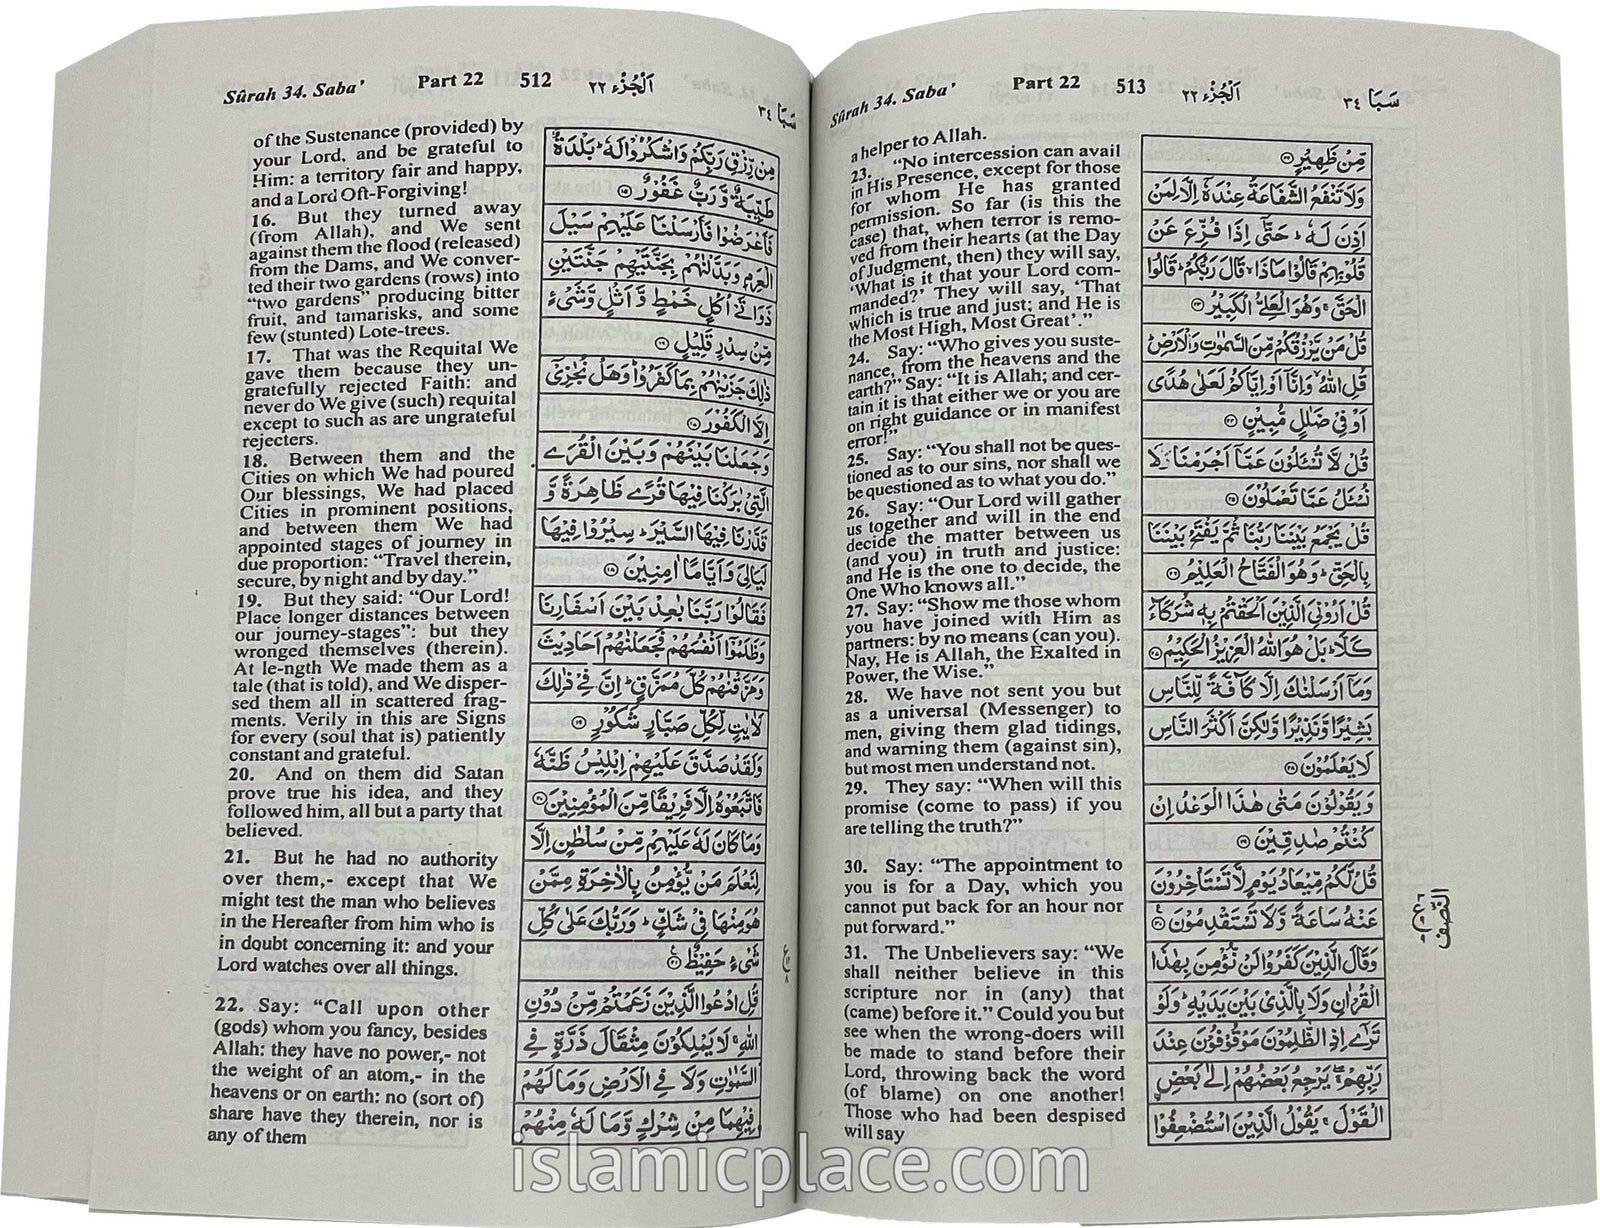 Sûrah 34. Saba’ Part 22 512 اَلْجُزْء ٢٢ سَبَا ٣٤
of the Sustenance (provided) by
your Lord, and be grateful to
Him: a territory fair and happy,
and a Lord Oft-Forgiving!
16. But they turned away
(from Allah), and We sent
against them the flood (released)
from the Dams, and We conver-
ted their two gardens (rows) into
“two gardens” producing bitter
fruit, and tamarisks, and some
few (stunted) Lote-trees.
17. That was the Requital We
gave them because they un-
gratefully rejected Faith: and
never do We give (such) requital
except to such as are ungrateful
rejecters.
18. Between them and the
Cities on which We had poured
Our blessings, We had placed
Cities in prominent positions,
and between them We had
appointed stages of journey in
due proportion: “Travel therein,
secure, by night and by day.”
19. But they said: “Our Lord!
Place longer distances between
our journey-stages”: but they
wronged themselves (therein).
At le-ngth We made them as a
tale (that is told), and We disper-
sed them all in scattered frag-
ments. Verily in this are Signs
for every (soul that is) patiently
constant and grateful.
20. And on them did Satan
prove true his idea, and they
followed him, all but a party that
believed.
21. But he had no authority
over them,- except that We
might test the man who believes
in the Hereafter from him who is
in doubt concerning it: and your
Lord watches over all things.
22. Say: “Call upon other
(gods) whom you fancy, besides
Allah: they have no power,- not
the weight of an atom,- in the
heavens or on earth: no (sort of)
share have they therein, nor is
any of them
مِنْ رِّزْقِ رَبِّكُمْ وَاشْكُرُوْا لَهٗ ؕ بَلْدَةٌ
طَيِّبَةٌ وَّ رَبٌّ غَفُوْرٌ ⁝١٥
فَاَعْرَضُوْا فَاَرْسَلْنَا عَلَيْهِمْ سَيْلَ
الْعَرِمِ وَبَدَّلْنٰهُمْ بِجَنَّتَيْهِمْ جَنَّتَيْنِ
ذَوَاتَيْ اُكُلٍ خَمْطٍ وَّ اَثْلٍ وَّشَيْءٍ
مِّنْ سِدْرٍ قَلِيْلٍ ١٦
ذٰلِكَ جَزَيْنٰهُمْ بِمَا كَفَرُوْا ؕ وَهَلْ نُجٰزِيْٓ
اِلَّا الْكَفُوْرَ ١٧
وَجَعَلْنَا بَيْنَهُمْ وَبَيْنَ الْقُرَى
الَّتِيْ بٰرَكْنَا فِيْهَا قُرًى ظَاهِرَةً وَّ
قَدَّرْنَا فِيْهَا السَّيْرَ ؕ سِيْرُوْا فِيْهَا
لَيَالِيَ وَاَيَّامًا اٰمِنِيْنَ ١٨
فَقَالُوْا رَبَّنَا بٰعِدْ بَيْنَ اَسْفَارِنَا
وَظَلَمُوْٓا اَنْفُسَهُمْ فَجَعَلْنٰهُمْ اَحَادِيْثَ
وَمَزَّقْنٰهُمْ كُلَّ مُمَزَّقٍ ؕ اِنَّ فِيْ ذٰلِكَ
لَاٰيٰتٍ لِّكُلِّ صَبَّارٍ شَكُوْرٍ ١٩
وَلَقَدْ صَدَّقَ عَلَيْهِمْ اِبْلِيْسُ ظَنَّهٗ
فَاتَّبَعُوْهُ اِلَّا فَرِيْقًا مِّنَ الْمُؤْمِنِيْنَ ٢٠
وَمَا كَانَ لَهٗ عَلَيْهِمْ مِّنْ سُلْطٰنٍ اِلَّا
لِنَعْلَمَ مَنْ يُّؤْمِنُ بِالْاٰخِرَةِ مِمَّنْ
هُوَ مِنْهَا فِيْ شَكٍّ ؕ وَرَبُّكَ عَلٰى كُلِّ
شَيْءٍ حَفِيْظٌ ٢١
قُلِ ادْعُوا الَّذِيْنَ زَعَمْتُمْ مِّنْ دُوْنِ
اللّٰهِ ۚ لَا يَمْلِكُوْنَ مِثْقَالَ ذَرَّةٍ فِي
السَّمٰوٰتِ وَلَا فِي الْاَرْضِ وَمَا لَهُمْ
فِيْهِمَا مِنْ شِرْكٍ وَّمَا لَهٗ مِنْهُمْ
Sûrah 34. Saba’ Part 22 513 اَلْجُزْء ٢٢ سَبَا ٣٤
a helper to Allah.
23. “No intercession can avail
in His Presence, except for those
for whom He has granted
permission. So far (is this the
case) that, when terror is remo-
ved from their hearts (at the Day
of Judgment, then) they will say,
‘What is it that your Lord com-
manded?’ They will say, ‘That
which is true and just; and He is
the Most High, Most Great’.”
24. Say: “Who gives you suste-
nance, from the heavens and the
earth?” Say: “It is Allah; and cer-
tain it is that either we or you are
on right guidance or in manifest
error!”
25. Say: “You shall not be ques-
tioned as to our sins, nor shall we
be questioned as to what you do.”
26. Say: “Our Lord will gather
us together and will in the end
decide the matter between us
(and you) in truth and justice:
and He is the one to decide, the
One Who knows all.”
27. Say: “Show me those whom
you have joined with Him as
partners: by no means (can you).
Nay, He is Allah, the Exalted in
Power, the Wise.”
28. We have not sent you but
as a universal (Messenger) to
men, giving them glad tidings,
and warning them (against sin),
but most men understand not.
29. They say: “When will this
promise (come to pass) if you
are telling the truth?”
30. Say: “The appointment to
you is for a Day, which you
cannot put back for an hour nor
put forward.”
31. The Unbelievers say: “We
shall neither believe in this
scripture nor in (any) that
(came) before it.” Could you but
see when the wrong-doers will
be made to stand before their
Lord, throwing back the word
(of blame) on one another!
Those who had been despised
will say
مِّنْ ظَهِيْرٍ ٢٢
وَلَا تَنْفَعُ الشَّفَاعَةُ عِنْدَهٗٓ اِلَّا لِمَنْ
اَذِنَ لَهٗ ؕ حَتّٰٓى اِذَا فُزِّعَ عَنْ
قُلُوْبِهِمْ قَالُوْا مَاذَا ۙ قَالَ رَبُّكُمْ ؕ قَالُوا
الْحَقَّ ۚ وَهُوَ الْعَلِيُّ الْكَبِيْرُ ٢٣
قُلْ مَنْ يَّرْزُقُكُمْ مِّنَ السَّمٰوٰتِ وَالْاَرْضِ ؕ
قُلِ اللّٰهُ ۙ وَاِنَّآ اَوْ اِيَّاكُمْ لَعَلٰى هُدًى
اَوْ فِيْ ضَلٰلٍ مُّبِيْنٍ ٢٤
قُلْ لَّا تُسْـَٔلُوْنَ عَمَّآ اَجْرَمْنَا وَلَا
نُسْـَٔلُ عَمَّا تَعْمَلُوْنَ ٢٥
قُلْ يَجْمَعُ بَيْنَنَا رَبُّنَا ثُمَّ يَفْتَحُ بَيْنَنَا
بِالْحَقِّ ؕ وَهُوَ الْفَتَّاحُ الْعَلِيْمُ ٢٦
قُلْ اَرُوْنِيَ الَّذِيْنَ اَلْحَقْتُمْ بِهٖ شُرَكَآءَ
كَلَّا ؕ بَلْ هُوَ اللّٰهُ الْعَزِيْزُ الْحَكِيْمُ ٢٧
وَمَآ اَرْسَلْنٰكَ اِلَّا كَآفَّةً لِّلنَّاسِ
بَشِيْرًا وَّنَذِيْرًا وَّلٰكِنَّ اَكْثَرَ النَّاسِ
لَا يَعْلَمُوْنَ ٢٨
وَيَقُوْلُوْنَ مَتٰى هٰذَا الْوَعْدُ اِنْ
كُنْتُمْ صٰدِقِيْنَ ٢٩
قُلْ لَّكُمْ مِّيْعَادُ يَوْمٍ لَّا تَسْتَاْخِرُوْنَ
عَنْهُ سَاعَةً وَّلَا تَسْتَقْدِمُوْنَ ٣٠
وَقَالَ الَّذِيْنَ كَفَرُوْا لَنْ نُّؤْمِنَ بِهٰذَا
الْقُرْاٰنِ وَلَا بِالَّذِيْ بَيْنَ يَدَيْهِ ؕ وَلَوْ
تَرٰٓى اِذِ الظّٰلِمُوْنَ مَوْقُوْفُوْنَ عِنْدَ
رَبِّهِمْ ۚ يَرْجِعُ بَعْضُهُمْ اِلٰى بَعْضِ
الْقَوْلَ ۚ يَقُوْلُ الَّذِيْنَ اسْتُضْعِفُوْا
النصف
islamicplace.com